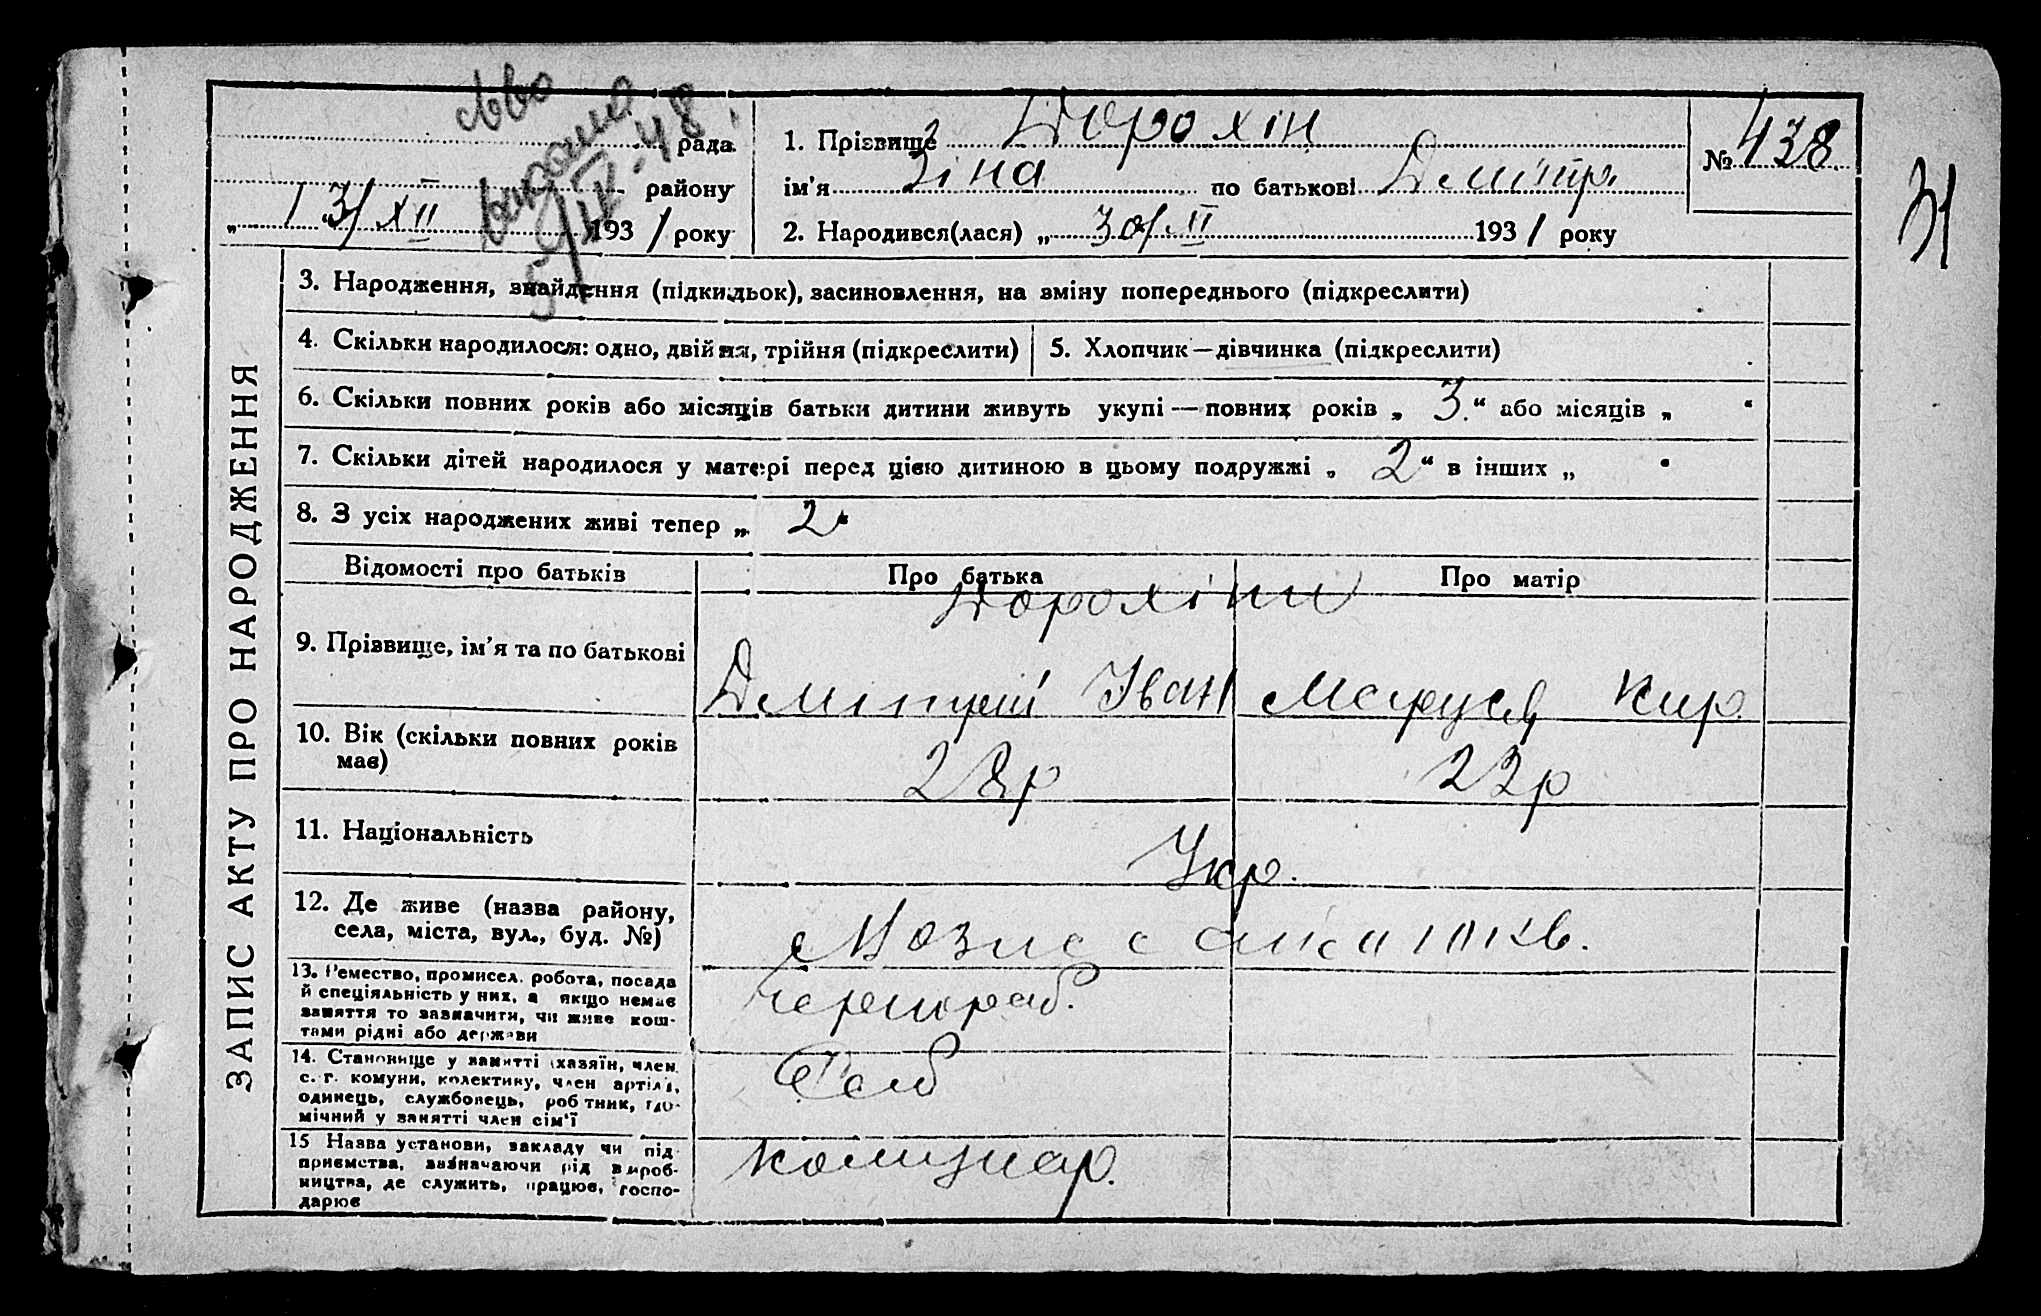 рада
району
„ 13/XII 1931 року
св-во
видано
5/IV-48.
1. Прізвище Дорохін
ім'я Зіна по батькові Дмитр.
2. Народився(лася) „ 30/XI 1931 року
№ 438
31
ЗАПИС АКТУ ПРО НАРОДЖЕННЯ
3. Народження, знайдення (підкидьок), засиновлення, на зміну попереднього (підкреслити)
4. Скільки народилося: одно, двійня, трійня (підкреслити) 5. Хлопчик—дівчинка (підкреслити)
6. Скільки повних років або місяців батьки дитини живуть укупі — повних років „ 3 “ або місяців „ “
7. Скільки дітей народилося у матері перед цією дитиною в цьому подружжі „ 2 “ в інших „ “
8. З усіх народжених живі тепер „ 2 “
Відомості про батьків Про батька Про матір
Дорохіни
9. Прізвище, ім'я та по батькові Дмитрій Іван Маруся Кир.
10. Вік (скільки повних років 28р 22р
має)
11. Національність Укр.
12. Де живе (назва району,
села, міста, вул., буд. №)
13. Ремество, промисел, робота, посада
й спеціяльність у них, а якщо немає
заняття то зазначити, чи живе кош-
тами рідні або держави
чернораб.
14. Становище у занятті (хазяїн, член
с.-г. комуни, колективу, член артілі,
одинець, службовець, робітник, гдо-
мічний у занятті член сім'ї
15 Назва установи, закладу чи під-
приємства, зазначаючи рід вироб-
ництва, де служить, працює, госпо-
дарює